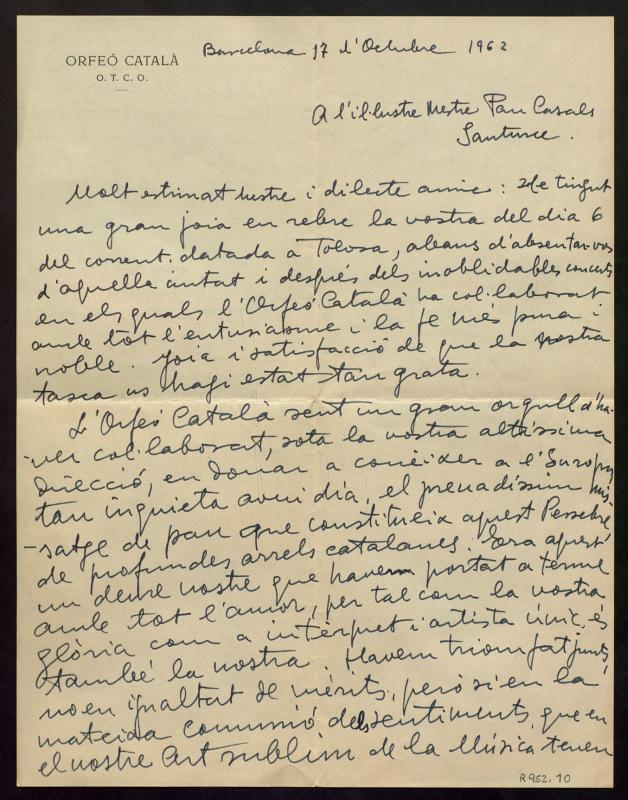 ORFEÓ CATALÀ
O. T. C. O.
Barcelona 17 d'Octubre 1962
A l'il·lustre Mestre Pau Casals
Santurce.
Molt estimat Mestre i dilecte amic: He tingut
una gran joia en rebre la vostra del dia 6
del corrent, datada a Tolosa, abans d'absentar-vos
d'aquella ciutat i després dels inoblidables concerts
en els quals l'Orfeó Català ha col·laborat
amb tot l'entusiasme i la fe més pura i
noble. Joia i satisfacció de que la nostra
tasca us hagi estat tan grata.
L'Orfeó Català sent un gran orgull d'ha-
ver col·laborat, sota la vostra altíssima
direcció, en donar a conèixer a l'Europa,
tan inquieta avui dia, el preuadíssim mis-
satge de pau que constitueix aquest Pessebre
de profundes arrels catalanes. Era aquest
un deure nostre que havem portat a terme
amb tot l'amor, per tal com la vostra
glòria com a intèrpret i artista únic, és
també la nostra. Havem triomfat junts,
no en igualtat de mèrits, però si en la
mateixa comunió dels sentiments que en
el nostre Art sublim de la Música tenen
R 952.10